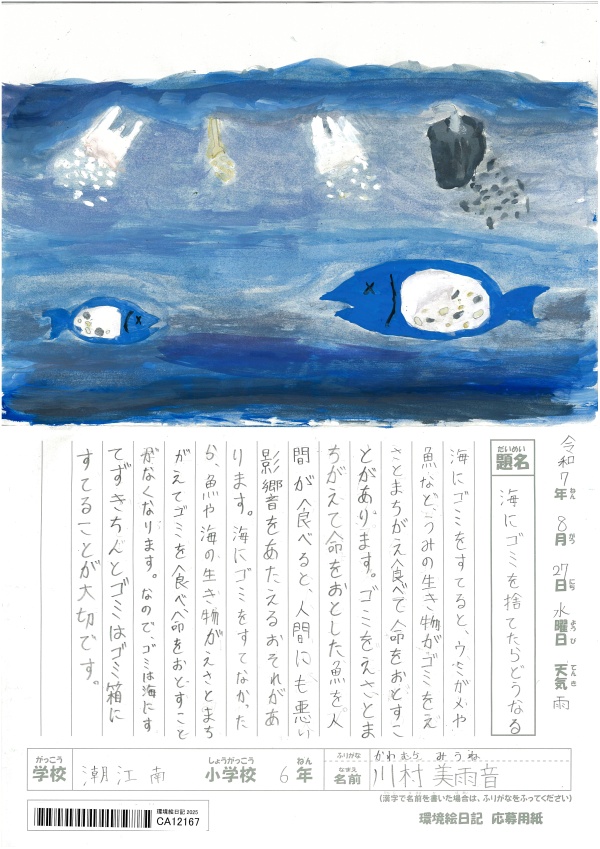 令和7年ねん 8月がつ 27日にち 水曜日ようび 天気てんき 雨
だいめい
題名
海にゴミを捨てたらどうなる
海にゴミをすてると、ウミガメや
魚など、うみの生き物がゴミをえ
さとまちがえ食べて命をおとすこ
とがあります。ゴミをえさとま
ちがえて命をおとした魚を人
間が食べると、人間にも悪い
影響をあたえるおそれがあ
ります。海にゴミをすてなかった
ら、魚や海の生き物がえさとまち
がえてゴミを食べ、命をおとすこと
がなくなります。なので、ゴミは海にす
てずきちんとゴミはゴミ箱に
すてることが大切です。
がっこう
学校
潮江南
しょうがっこう
小学校
6
ねん
年
ふりがな
かわむら みうね
なまえ
名前
川村 美雨音
(漢字で名前を書いた場合は、ふりがなをふってください)
環境絵日記 2025
CA12167
環境絵日記 応募用紙